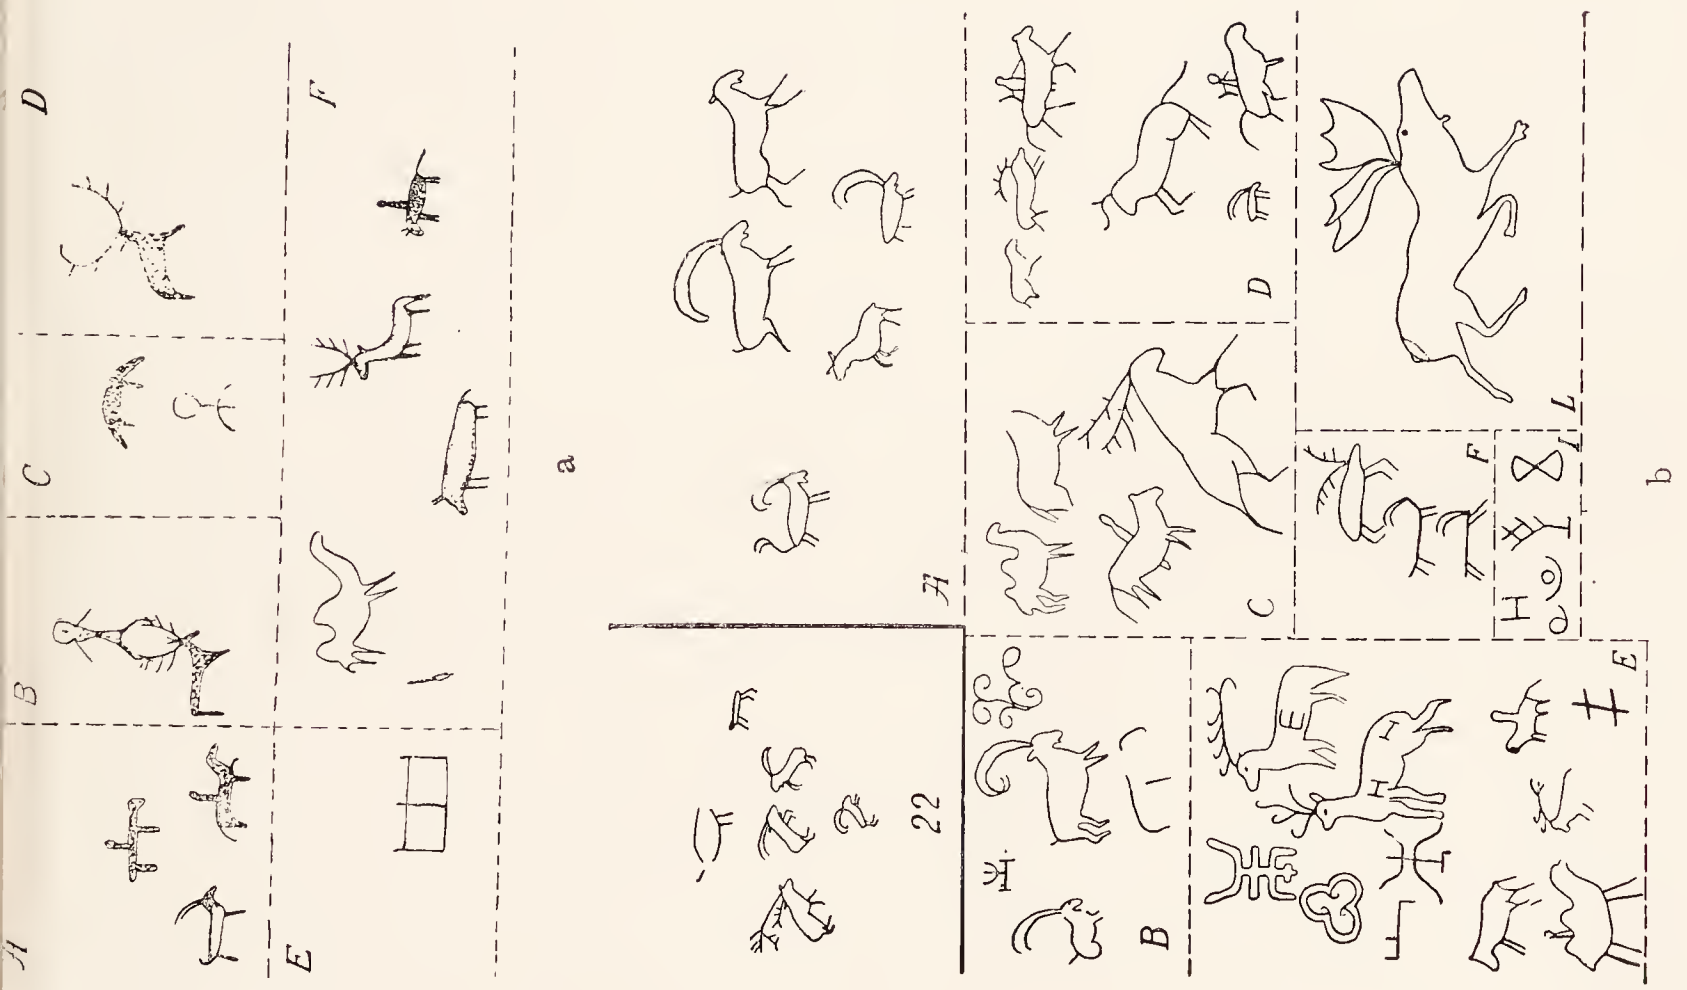 A
B
C
D
E
F
a
22
A
B
C
D
E
F
I
L
b